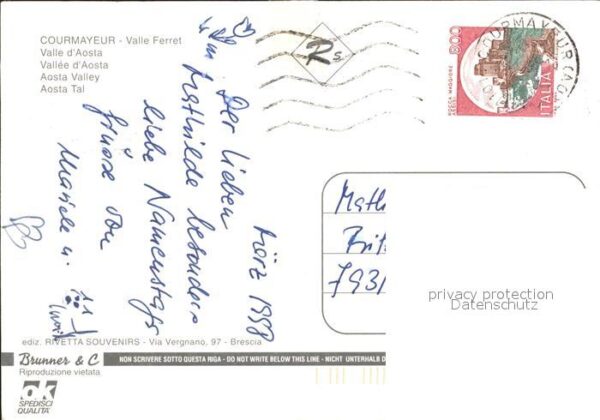 COURMAYEUR - Valle Ferret
Valle d'Aosta
Vallée d'Aosta
Aosta Valley
Aosta Tal
März 1998
Der lieben
Mathilde besonders
liebe Namenstags
grüsse von
Mariele u.
800
ROCCA MAGGIORE
ITALIA
COURMAYEUR (AO)
Math
Brit
7931
privacy protection
Datenschutz
ediz. RIVETTA SOUVENIRS - Via Vergnano, 97 - Brescia
Brunner & C
NON SCRIVERE SOTTO QUESTA RIGA - DO NOT WRITE BELOW THIS LINE - NICHT UNTERHALB D
Riproduzione vietata
ok
SPEDISCI
QUALITA'